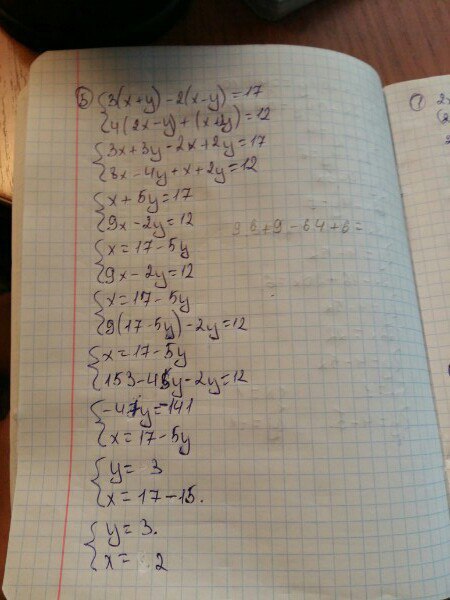 5 { 3(x+y)-2(x-y)=17
4(2x-y)+(x+2y)=12
{ 3x+3y-2x+2y=17
8x-4y+x+2y=12
{ x+5y=17
9x-2y=12
{ x=17-5y
9x-2y=12
{ x=17-5y
9(17-5y)-2y=12
{ x=17-5y
153-45y-2y=12
{ -47y=-141
x=17-5y
{ y=3
x=17-15.
{ y=3.
x=2